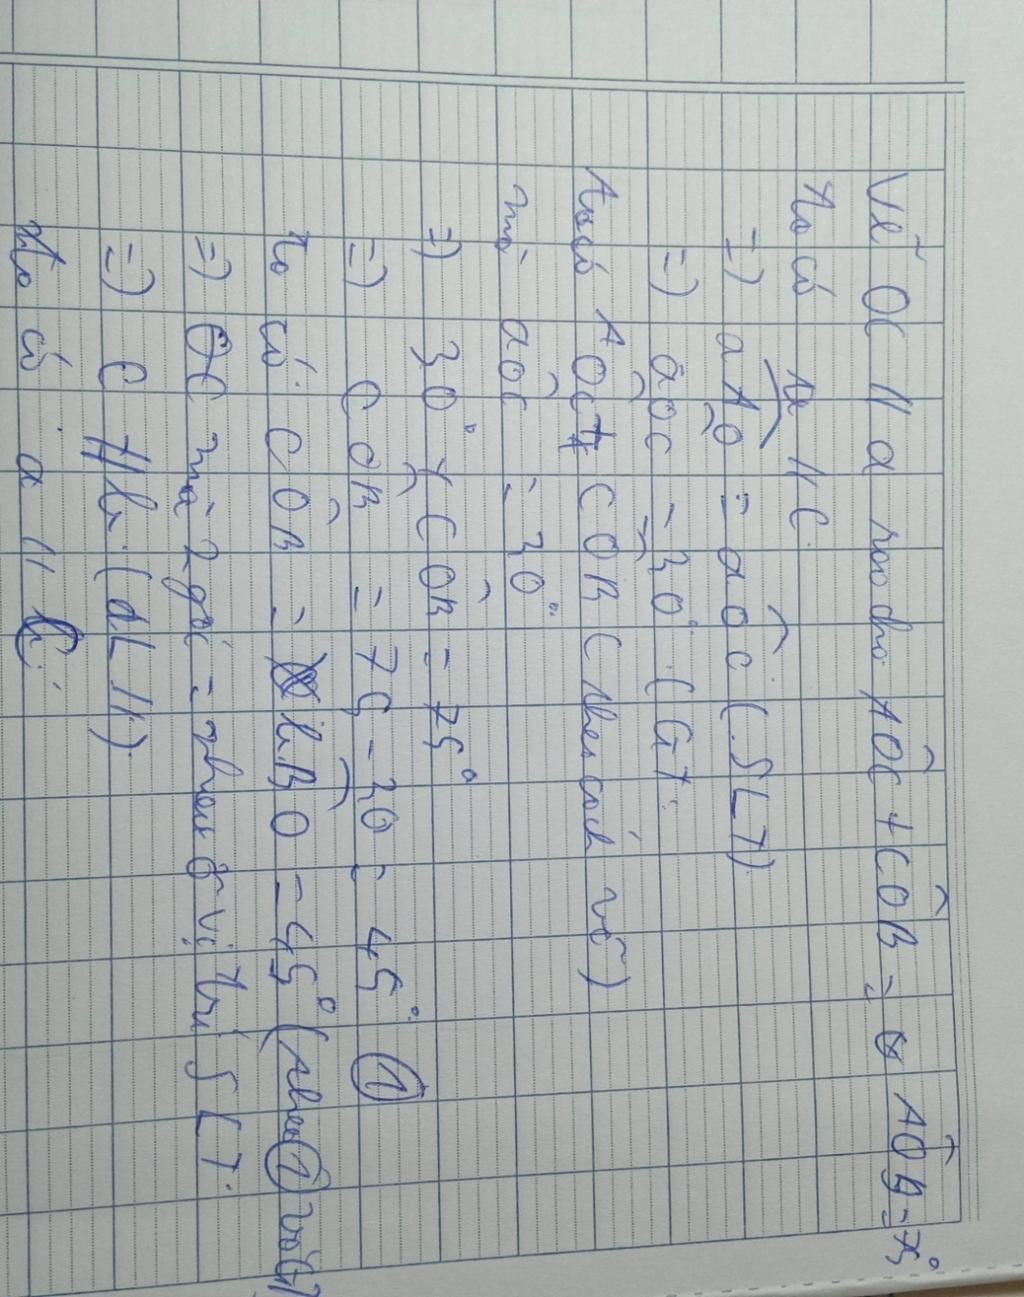 Vẽ OC // a sao cho AÔC + CÔB = AÔB = 75°
Ta có a // C
=) aAO = aOC (SLT)
=) aOC = 30° (GT
Ta có AOC + COB (theo cách vẽ)
mà aOC = 30°
=) 30° + COB = 75°
=) COB = 75 - 30 = 45° ①
ta có COB = bBO = 45° (theo ① và GT)
=) OC mà 2 góc = nhau ở vị trí SLT.
=) C // b (dL //)
Ta có a // b